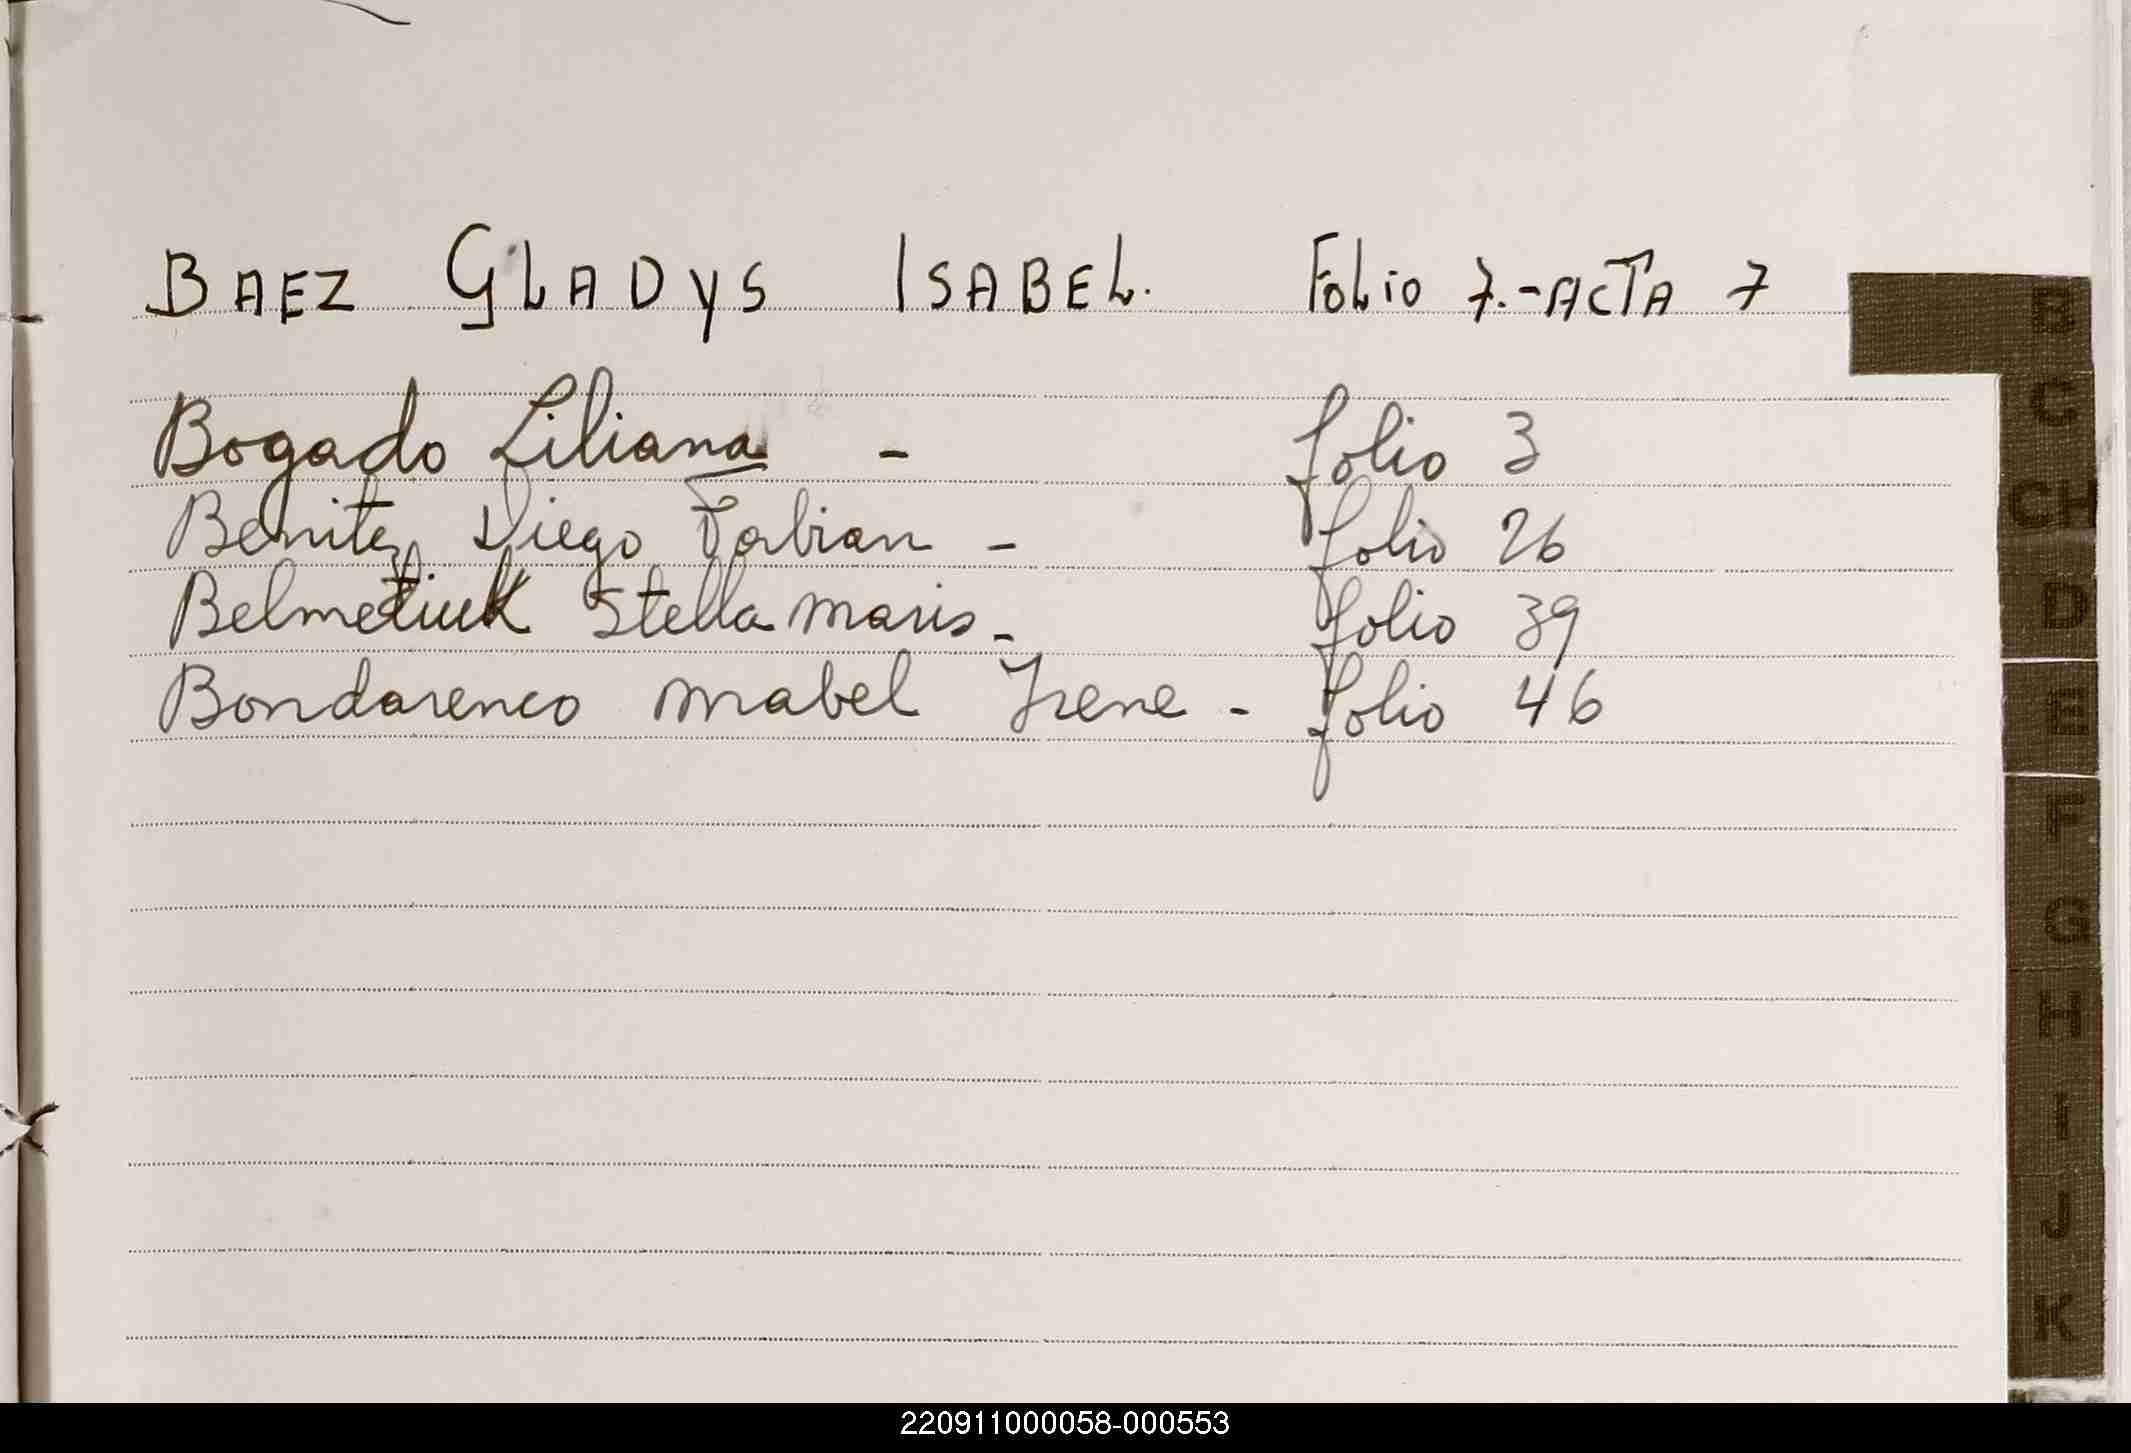 BAEZ GLADYS ISABEL. FOLIO 7.-ACTA 7
Bogado Liliana - folio 3
Benitez Diego Fabian - folio 26
Belmetiuk Stella Maris - folio 39
Bondarenco Mabel Irene - folio 46
B
C
CH
D
E
F
G
H
I
J
K
220911000058-000553